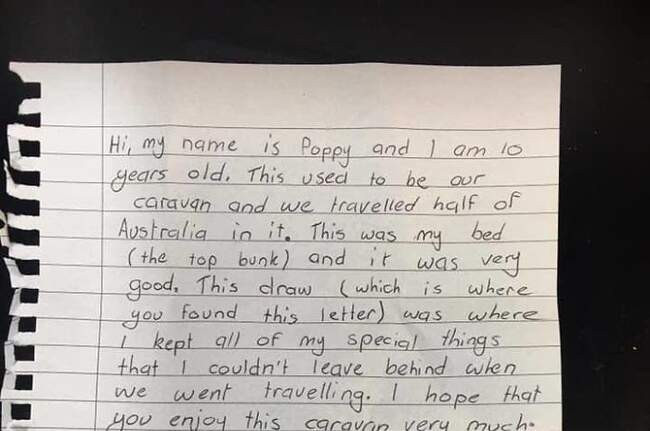 Hi, my name is Poppy and I am 10
years old. This used to be our
caravan and we travelled half of
Australia in it. This was my bed
(the top bunk) and it was very
good. This draw (which is where
you found this letter) was where
I kept all of my special things
that I couldn't leave behind when
we went travelling. I hope that
you enjoy this caravan very much.